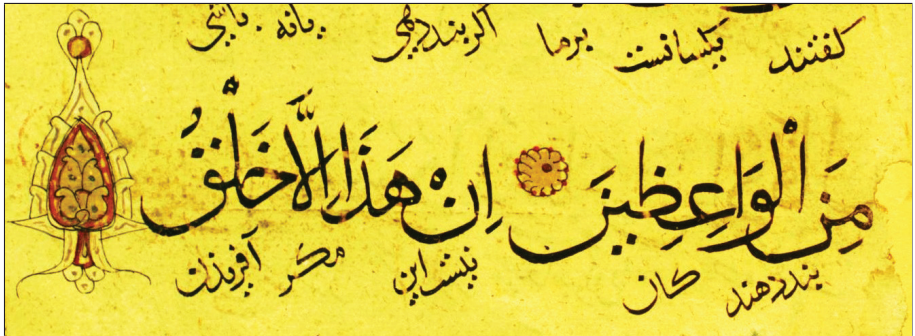 گفتند یکسانست برما اگر پند دهی یا نه باشی
مِنَ الْوَاعِظِينَ اِنْ هَذَا اِلَّا خَلْقُ
پند دهند کان نیست این مگر آفریدن